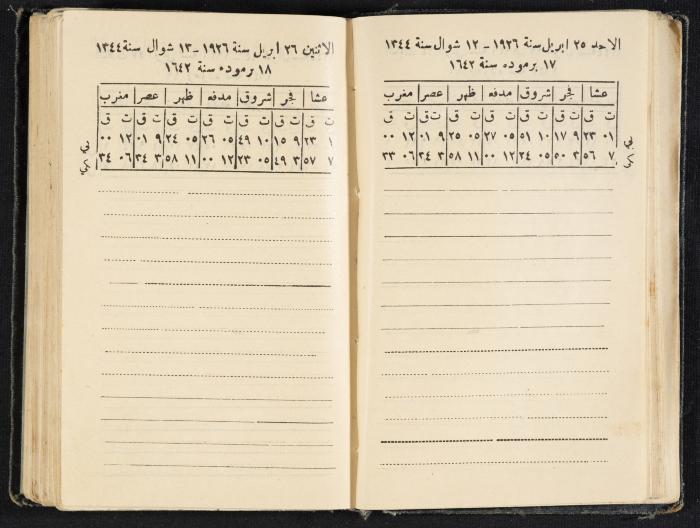 الاحد ٢٥ ابريل سنة ١٩٢٦ - ١٢ شوال سنة ١٣٤٤
١٧ برموده سنة ١٦٤٢
عشا فجر شروق مدفعه ظهر عصر مغرب
ت ق ت ق ت ق ت ق ت ق ت ق ت ق
٠١ ٢٣ ٩ ١٧ ١٠ ٥١ ٠٥ ٢٧ ٠٥ ٢٥ ٩ ٠١ ١٢ ٠٠
٧ ٥٦ ٣ ٥٠ ٠٥ ٢٤ ١٢ ٠٠ ١١ ٥٨ ٣ ٣٤ ٠٦ ٣٣
الاثنين ٢٦ ابريل سنة ١٩٢٦ - ١٣ شوال سنة ١٣٤٤
١٨ برموده سنة ١٦٤٢
عشا فجر شروق مدفعه ظهر عصر مغرب
ت ق ت ق ت ق ت ق ت ق ت ق ت ق
١ ٢٣ ٩ ١٥ ١٠ ٤٩ ٠٥ ٢٦ ٠٥ ٢٤ ٩ ٠١ ١٢ ٠٠
٧ ٥٧ ٣ ٤٩ ٠٥ ٢٣ ١٢ ٠٠ ١١ ٥٨ ٣ ٣٤ ٠٦ ٣٤